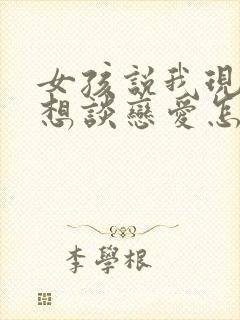 女孩說我現
想談戀愛怎
李學根